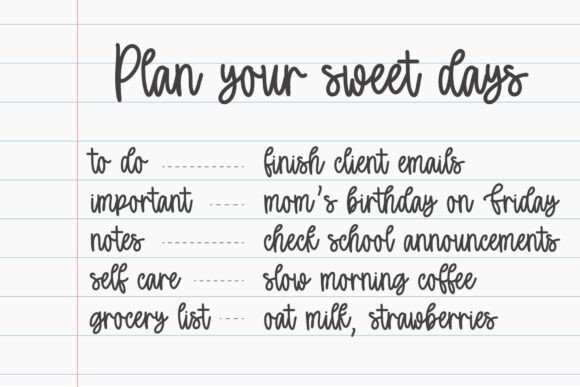 Plan your sweet days
to do ---------- finish client emails
important ---- mom's birthday on Friday
notes ---------- check school announcements
self care ------ slow morning coffee
grocery list --- oat milk, strawberries